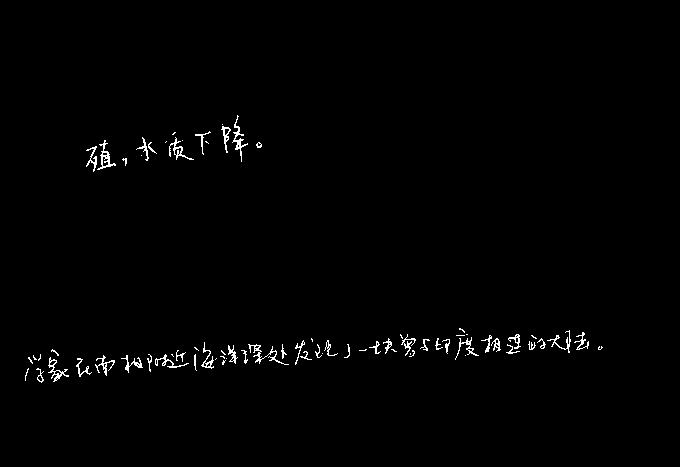 殖，水质下降。
学家在南极附近海洋深处发现了一块曾与印度相连的大陆。